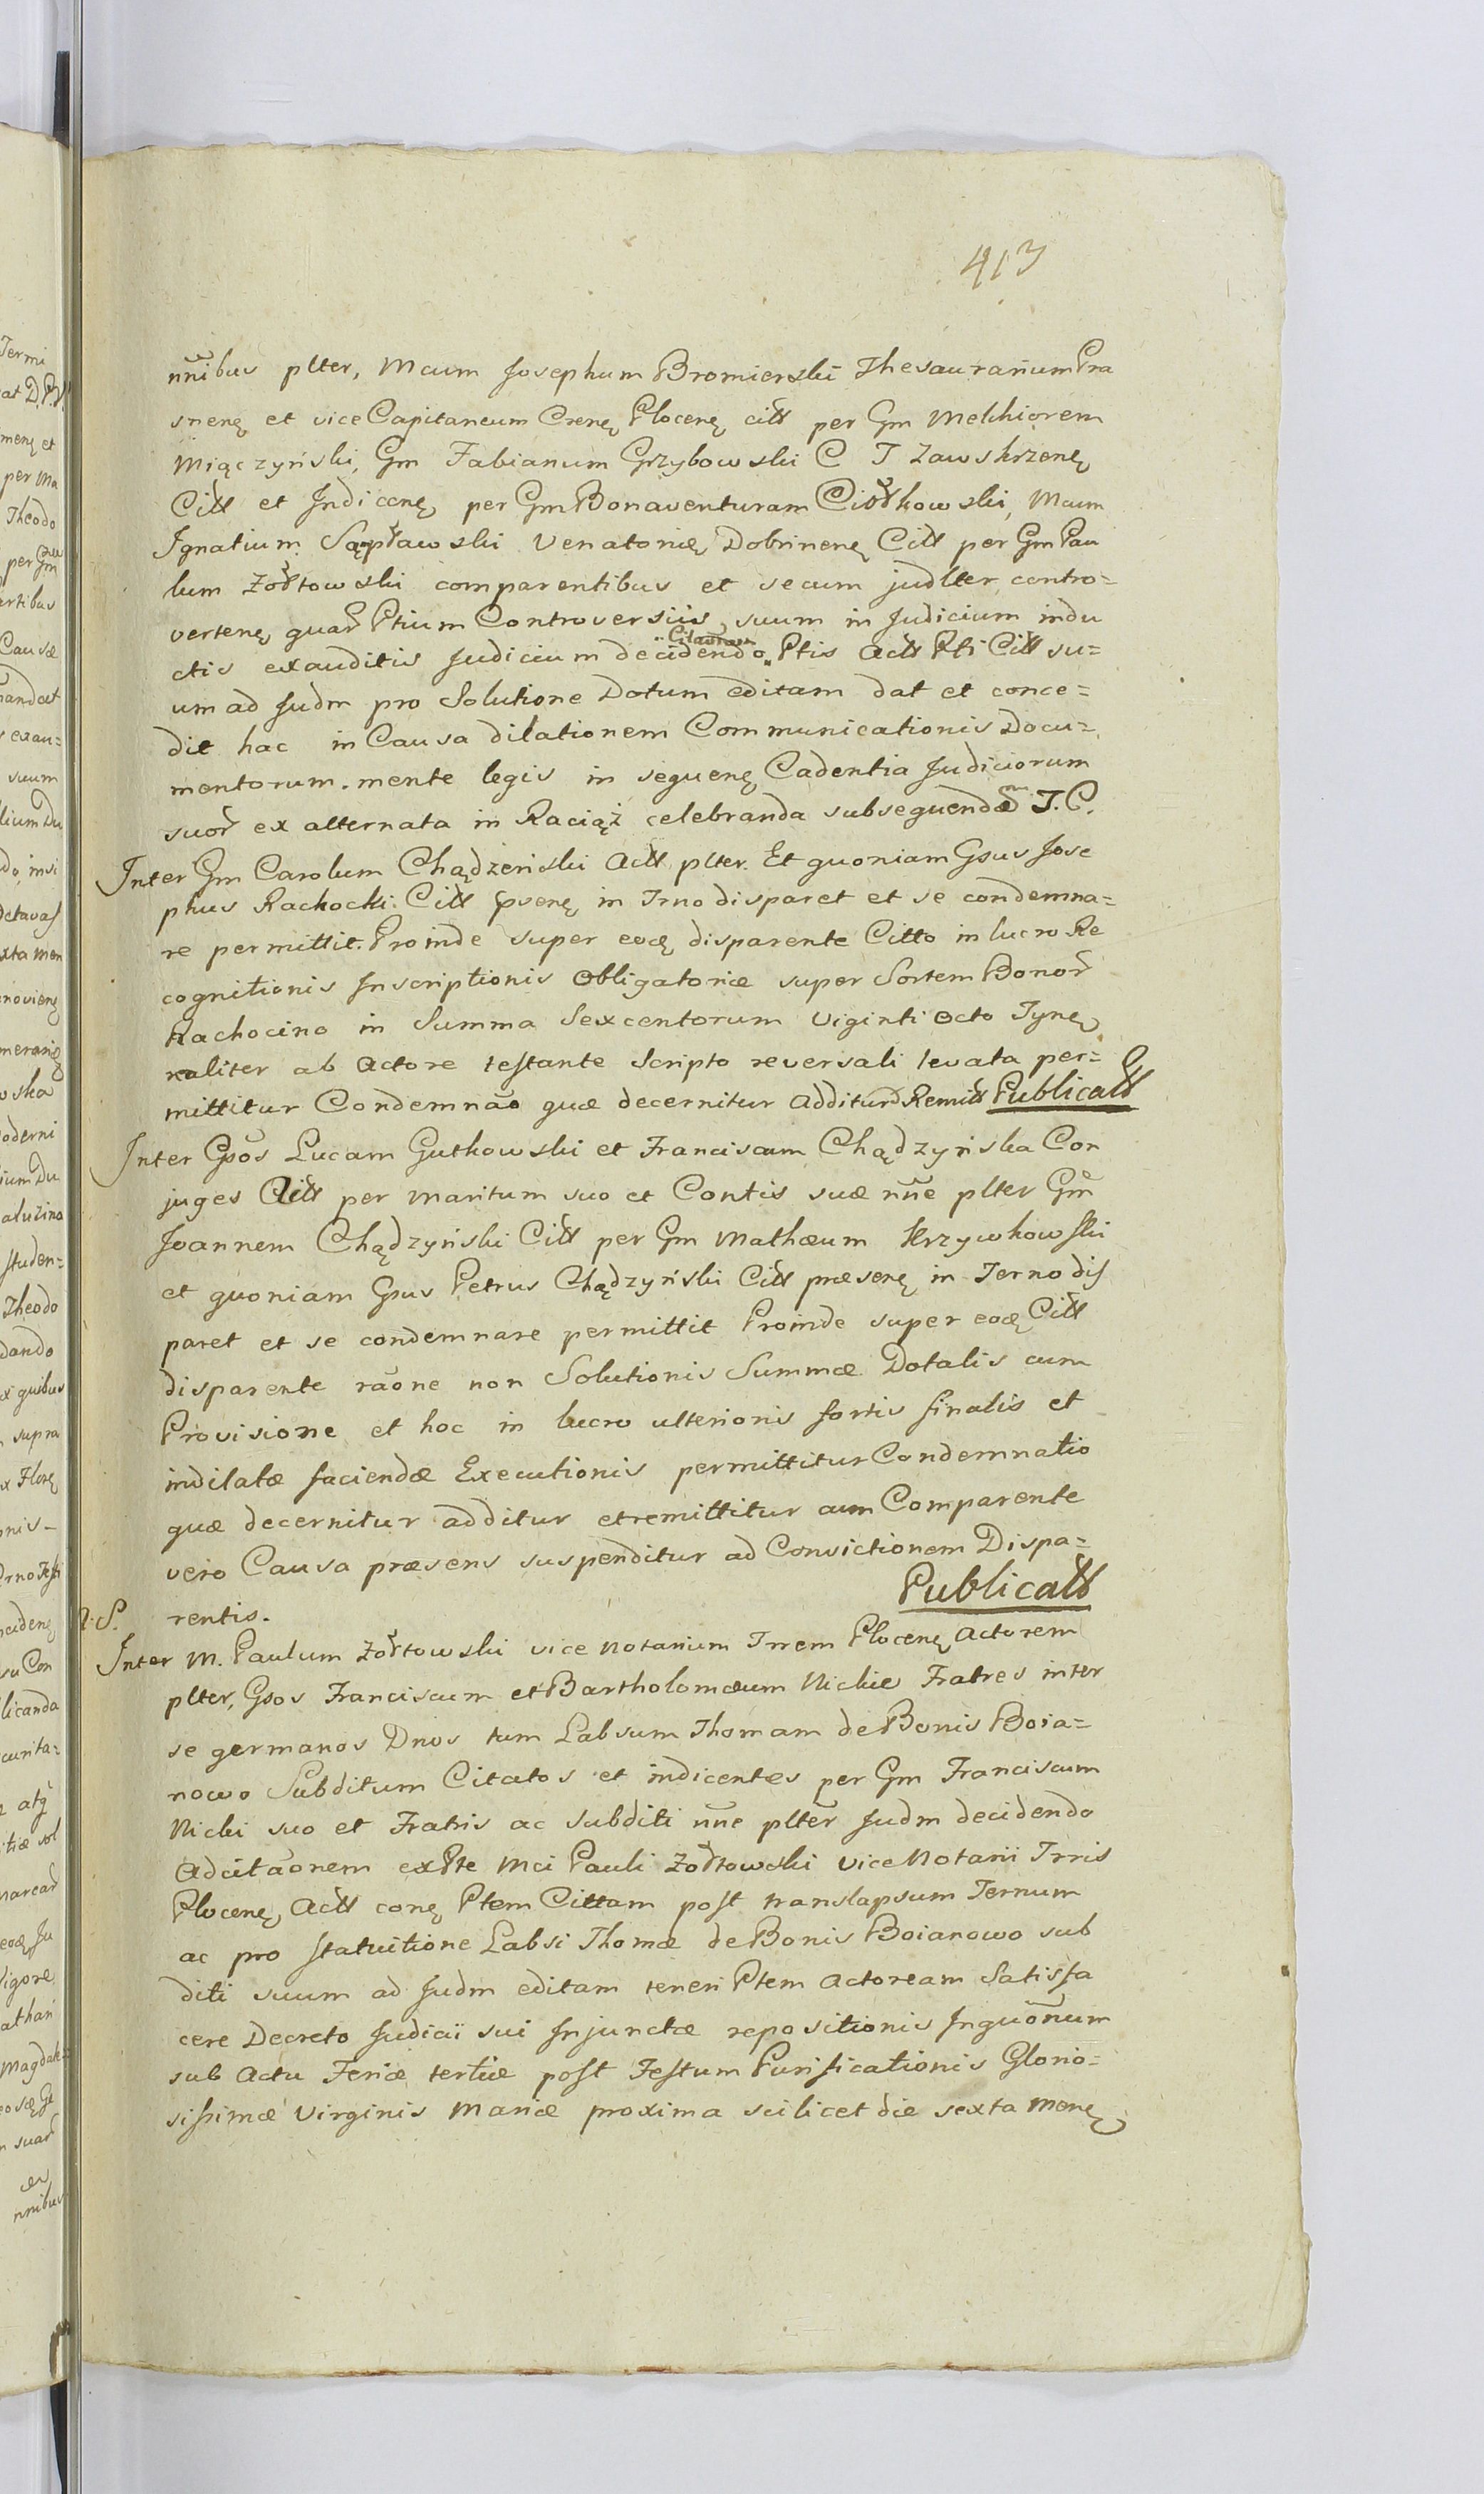 413
nnibus plter, Mcum Josephum Bromierski Thesaurarium Pra
snenę et vice Capitaneum Crenę Plocenę citt per Gm Melchiorem
Miączyński, Gm Fabianum Grzybowski C T Zawskrzenę
Citt et Indicenę per Gm Bonaventuram Ciołkowski, Mcum
Ignatium Venatorię Dobrinenę Citt per Gm Pau
lum Żołtowski comparentibus et secum judlter contro=
vertenę quar Ptium Controversiis, suum in Judicium indu
Citaonem
ctis exauditis Judicium decidendo Ptis Actt Pti Citt su=
um ad Judm pro Solutione Dotum editam dat et conce=
dit hac in Causa dilationem Communicationis Docu=
mentorum. mente legis in sequenę Cadentia Judiciorum
suor ex alternata in Raciąż celebranda subsequenda J. C.
Inter Gm Carolum Chądzeński Actt plter. Et quoniam Gsus Jose
phus Rachocki Citt psenę in Trno disparet et se condemna=
re permittit. Proinde super eoę disparente Citto in lucro Re
cognitionis Inscriptionis Obligatoriæ super Sortem Bonor
Rachocino in Summa Sexcentorum Viginti Octo Tynę
realiter ab Actore testante Scripto reversali levata per=
mittitur Condemnao quæ decernitur Additur Remitt Publicatt
Inter Gsos Lucam Gutkowski et Franciscam Chądzyńska Con
juges Citt per Maritum suo et Contis suæ nne plter Gm
Joannem Chądzyński Citt per Gm Mathæum Krzywkowski
et quoniam Gsus Petrus Chądzyński Citt præsenę in Terno dis
paret et se condemnare permittit Proinde super eoę Citt
disparente raone non Solutionis Summæ Dotalis cum
Provisione et hoc in lucro ulterioris fortis finalis et
indilatæ faciendæ Executionis permittitur Condemnatio
quæ decernitur additur et remittitur cum Comparente
vero Causa præsens suspenditur ad Convictionem Dispa=
rentis. Publicatt
Inter M. Paulum Żołtowski vice Notarium Trrem Plocenę Actorem
plter, Gsos Franciscum et Bartholomæum Nickie Fratres inter
se germanos Dnos tum Labsum Thomam de Bonis Boia=
nowo Subditum Citatos et indicentes per Gm Franciscum
Nicki suo et Fratris ac Subditi nne plter Judm decidendo
Adcitaonem ex Pte Mci Pauli Żołtowski Vice Notarii Trris
Plocenę Actt conę Ptem Cittam post translapsum Ternum
ac pro statuitione Labsi Thomæ de Bonis Boianowo sub
diti suum ad Judm editam teneri Ptem Actoream Satisfa
cere Decreto Judicii sui Injunctæ repositionis Inquonum
sub Actu Feriæ tertiæ post Festum Purificationis Glorio=
sissimæ Virginis Mariæ proxima scilicet die sexta Menę